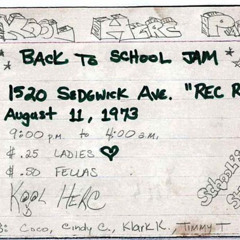 KOOL HERC P
BACK TO SCHOOL JAM
1520 SEDGWICK AVE. "REC R
August 11, 1973
9:00 p.m. to 4:00 a.m.
$.25 LADIES
$.50 FELLAS
KOOL HERC
: Coco, Cindy C., Klark K., Timmy T